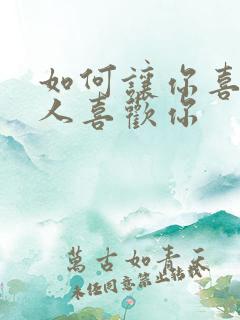 如何讓你喜
人喜歡你
萬古如青天
未經同意禁止轉載